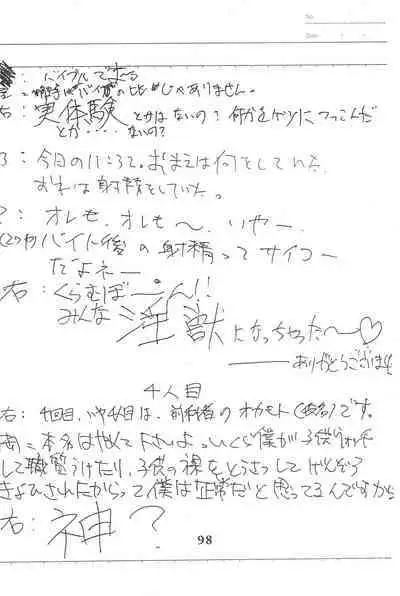 No.
Date
右：実体験とかはないの？何かをケツにつっこんだ
とか‥‥ないの？
3：今日の11:32。おまえは何をしてた。
おれは射精をしていた。
？：オレも、オレも〜、いやー、
バイト後の射精ってサイコー
だよネー
右：くらむぼーん!!
みんな淫獣になっちゃった〜♡
──ありがとうございます
4人目
右：4回目、いや4人目は、前科者のオカモト(仮名)です。
本名はやめてださいよ。いくら僕が子供
して職質うけたり、子供の裸をとうさつしてげんぞう
きょひされたからって僕は正常だと思ってるんですから
右：神？
98